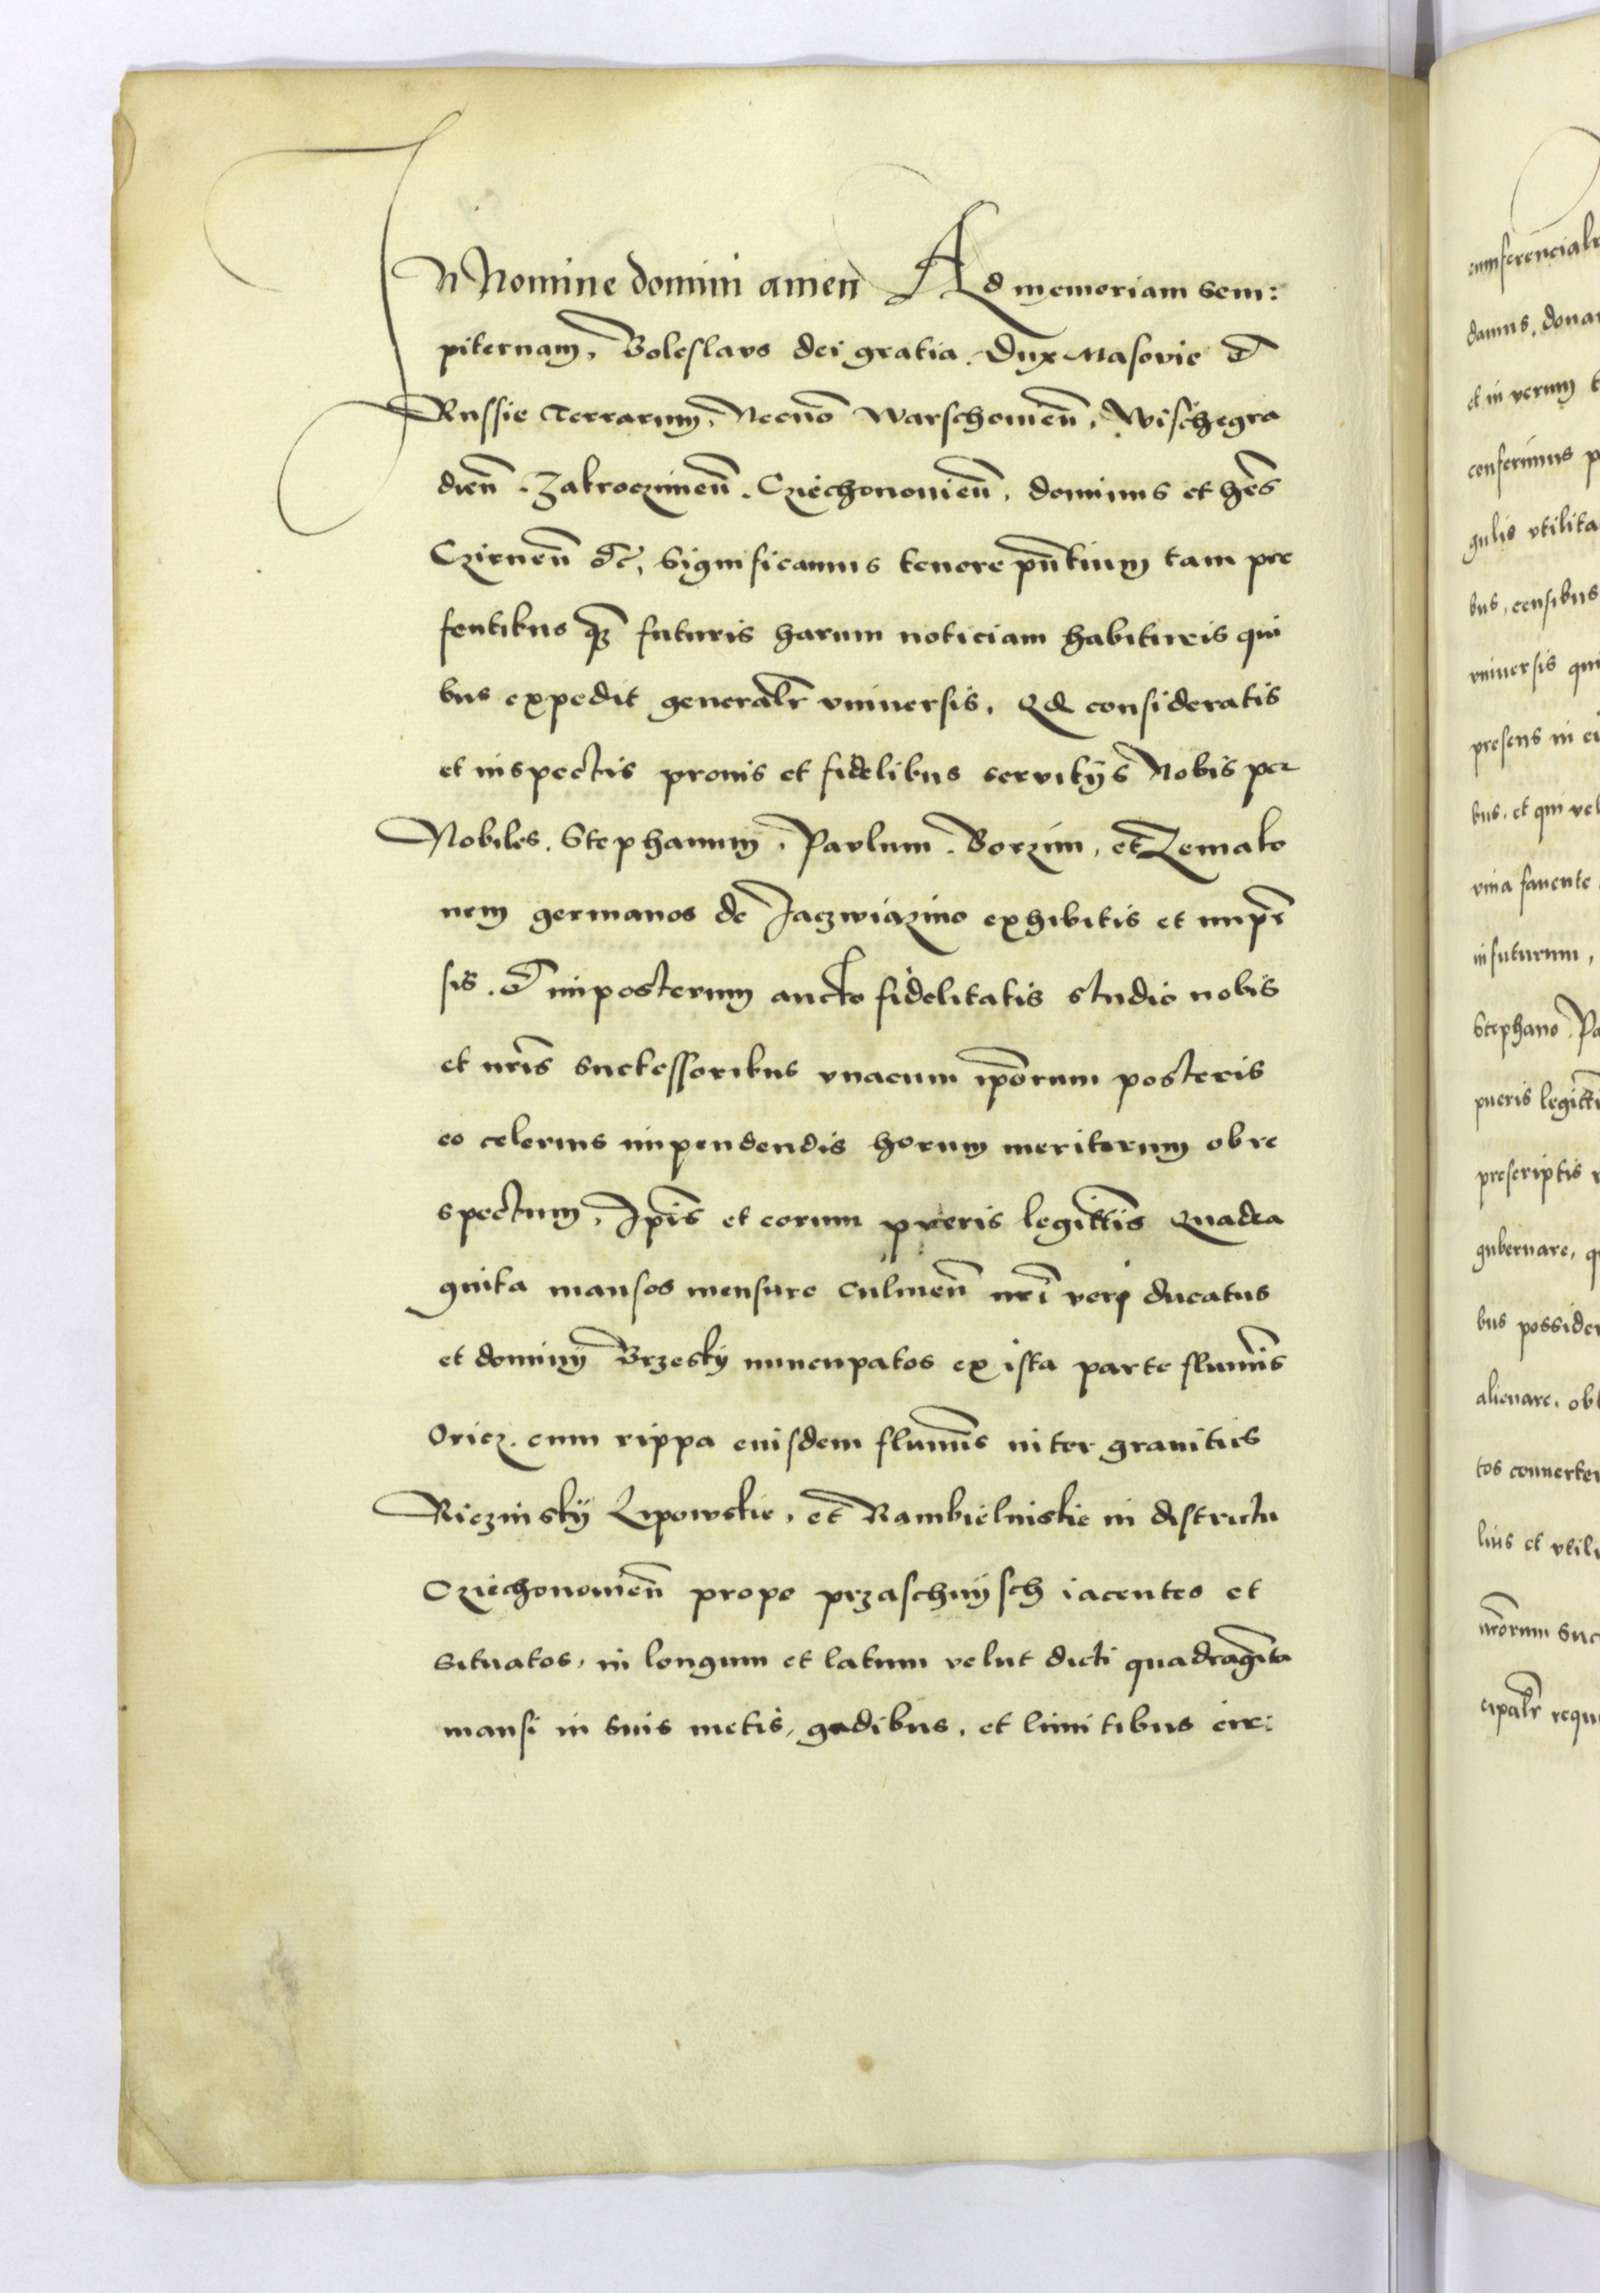 IN Nomine domini amen Ad memoriam sem:
piternam, Boleslavs dei gratia Dux Masovie et
Russie Terrarum, Necnō Warschouieñ, Wischegra
dieñ . Zakroczimeñ . Cziechonouieñ, dominus et hēs
Czirneñ etc, Significamus tenore pñtium tam pre
sentibus qз futuris harum noticiam habituris qui
bus expedit generalr vniuersis, Qd consideratis
et inspectis pronis et fidelibus servitijs Nobis per
Nobiles . Stephanum, Pavlum . Borzim, et Zemako
nem germanos de Jaczwiazino exhibitis et impē
sis . et imposterum aucto fidelitatis studio nobis
et nrīs successoribus vnacum ipōrum posteris
eo celerius impendendis horum meritorum ob re
spectum, Ipīs et eorum pveris legittīs Quadra
ginta mansos mensure Culmeñ nrī veri ducatus
et dominij Brzesky nuncupatos ex ista parte flumīs
Oricz . cum rippa euisdem flumīs inter granities
Rieczinskÿ Lipowskie, et Rambielinskie in districtu
Cziechonouieñ prope przaschnÿsch iacentes et
situatos, in longum et latum velut dicti quadragīta
mansi in suis metis, gadibus, et limitibus circ:
cumferencialr
damus, donam
et in verum t
conferimus p
gulis vtilita
bus, censibus
vniuersis qui
presens in ei
bus, et qui vel
vina fauente
in futurum,
Stephano Pa
pueris legitti
prescriptis
gubernare, q
bus possider
alienare, obl
tos conuerter
lius et vtili
nrōrum suc
cipalr requi